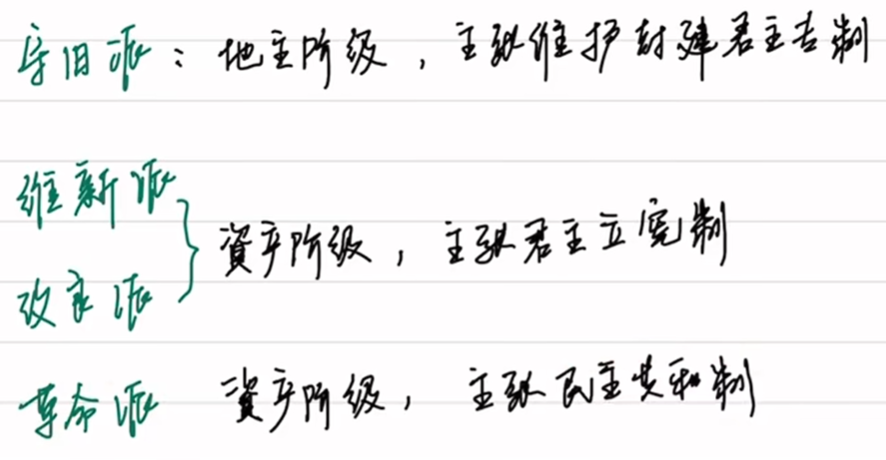 守旧派：地主阶级，主张维护封建君主专制
维新派
改良派
} 資产阶级，主张君主立宪制
革命派 資产阶级，主张民主共和制